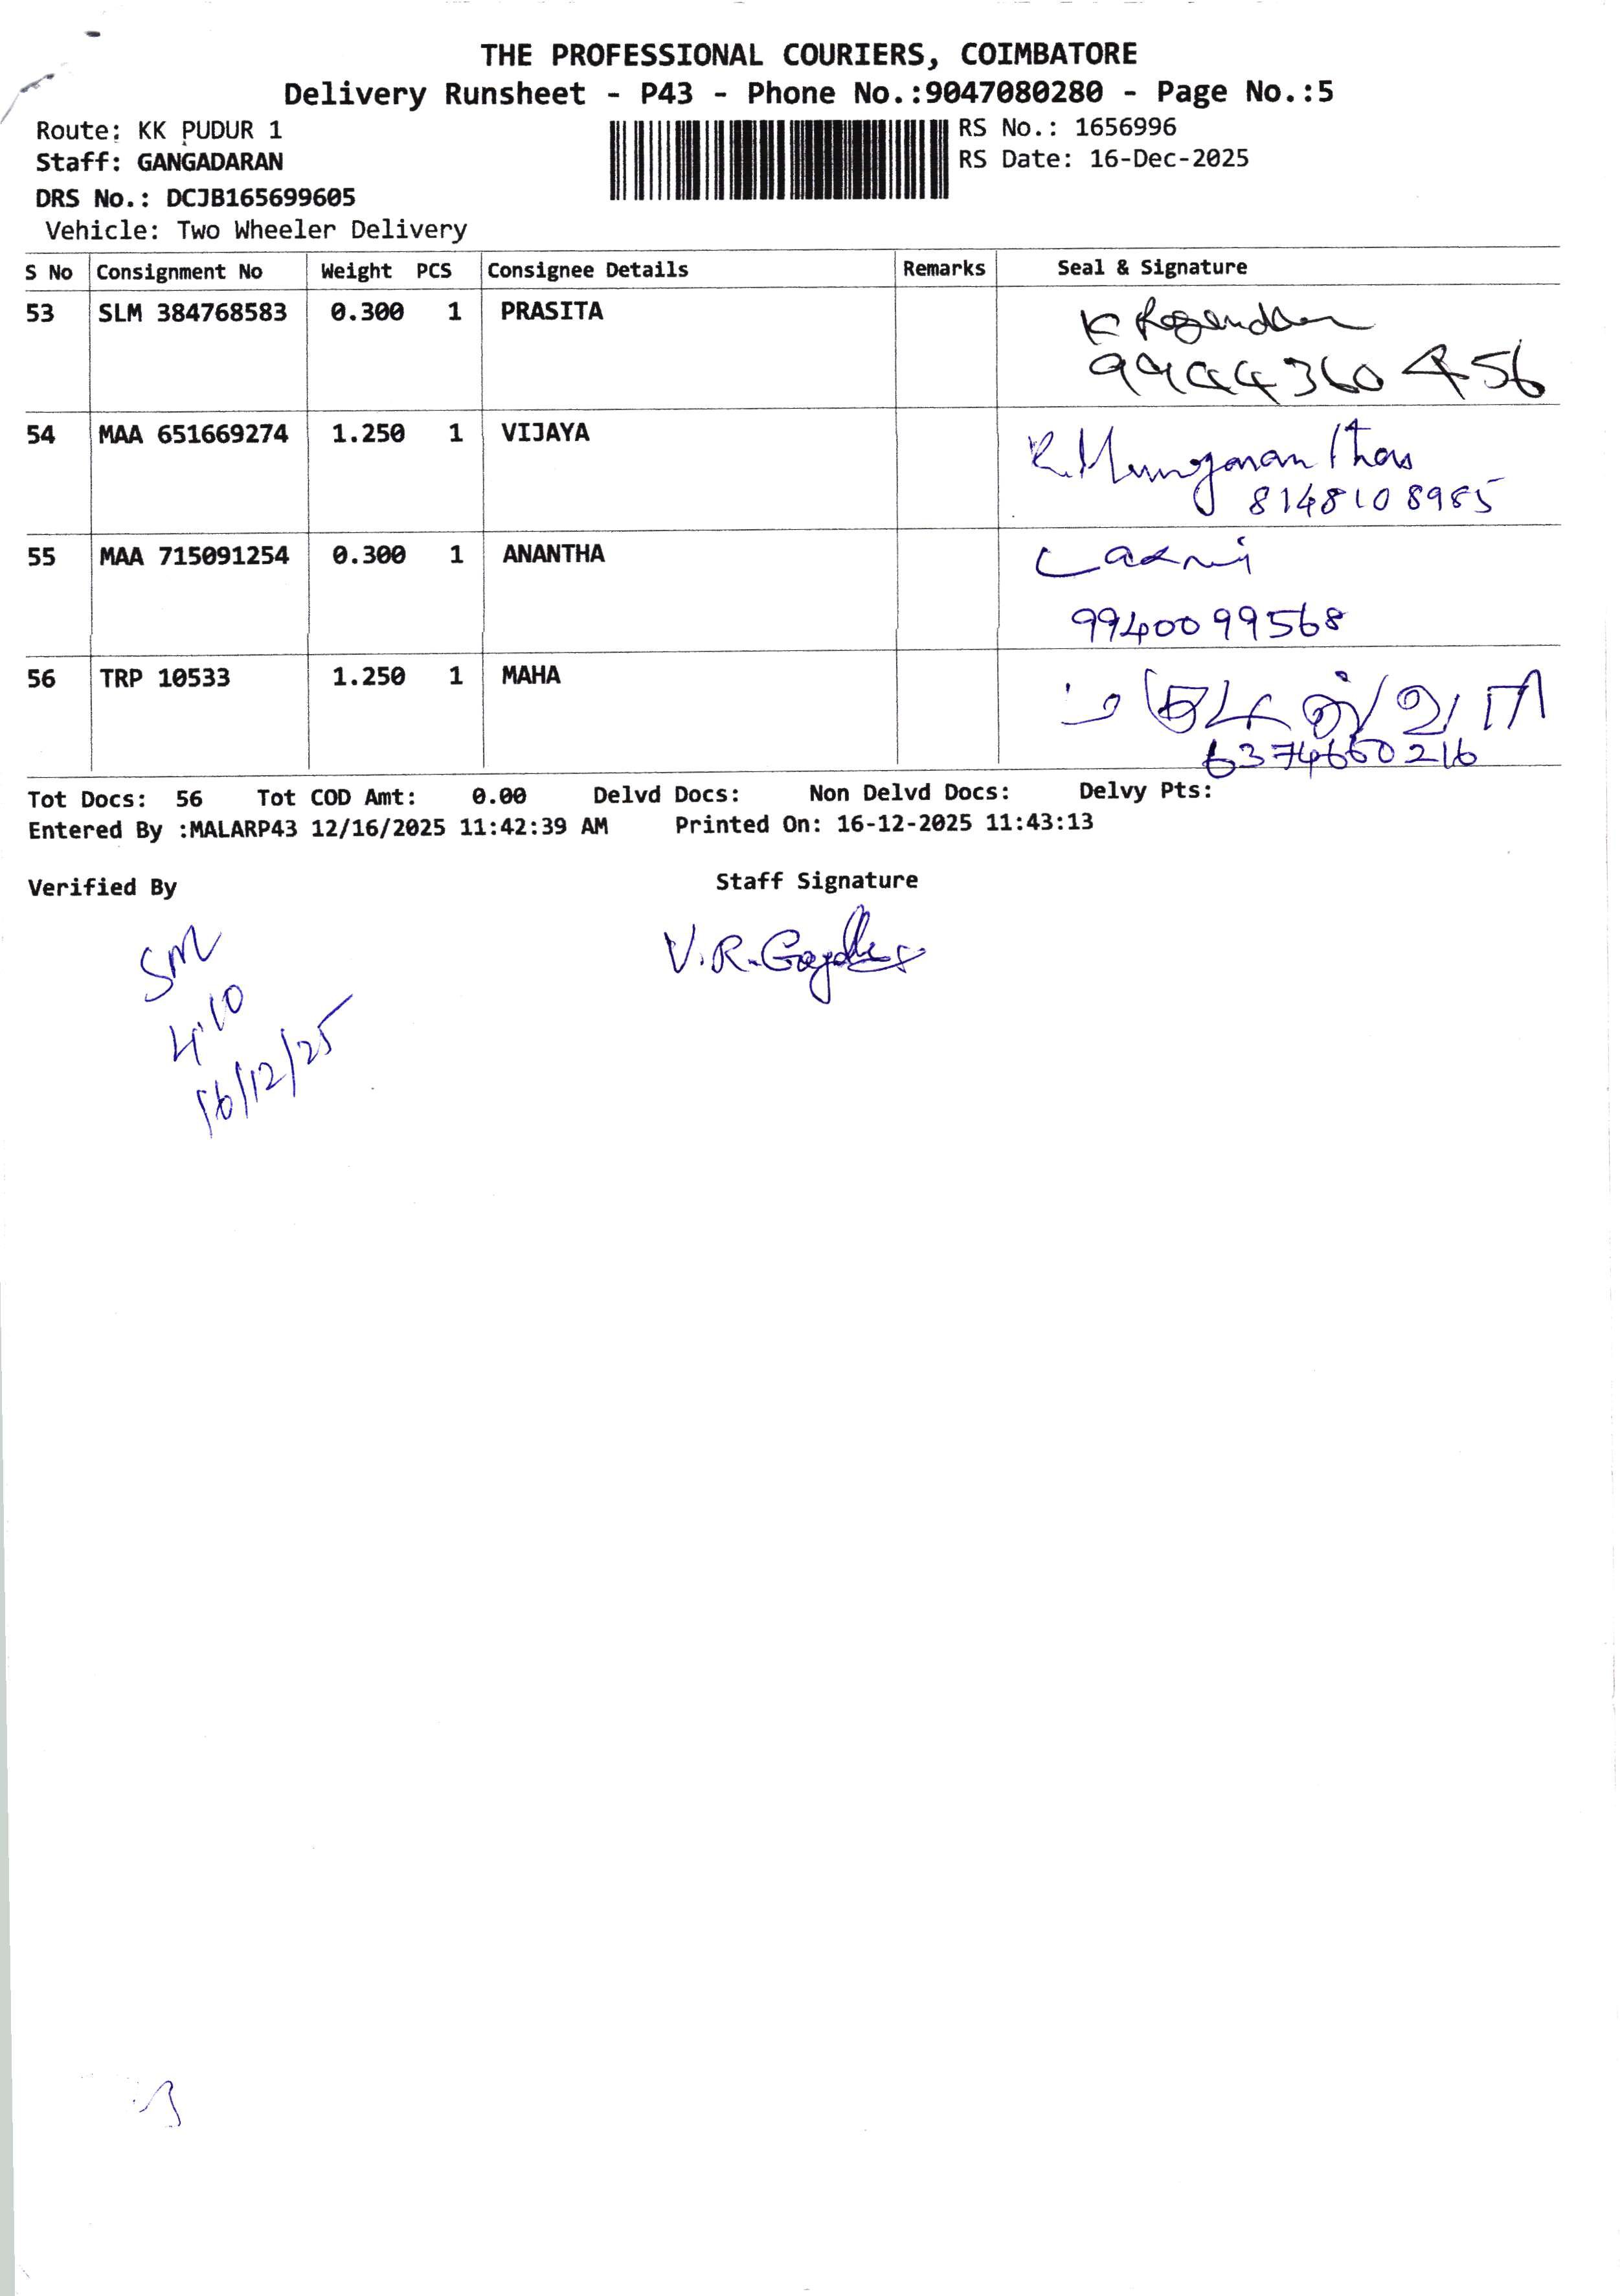 THE PROFESSIONAL COURIERS, COIMBATORE
Delivery Runsheet - P43 - Phone No.:9047080280 - Page No.:5
Route: KK PUDUR 1
RS No.: 1656996
Staff: GANGADARAN
RS Date: 16-Dec-2025
DRS No.: DCJB165699605
Vehicle: Two Wheeler Delivery
S No Consignment No Weight PCS Consignee Details Remarks Seal & Signature
53 SLM 384768583 0.300 1 PRASITA K
54 MAA 651669274 1.250 1 VIJAYA
8148108985
55 MAA 715091254 0.300 1 ANANTHA Laxmi
9940099568
56 TRP 10533 1.250 1 MAHA
6374660216
Tot Docs: 56 Tot COD Amt: 0.00 Delvd Docs: Non Delvd Docs: Delvy Pts:
Entered By :MALARP43 12/16/2025 11:42:39 AM Printed On: 16-12-2025 11:43:13
Verified By Staff Signature
V.R.
4.10
16/12/25